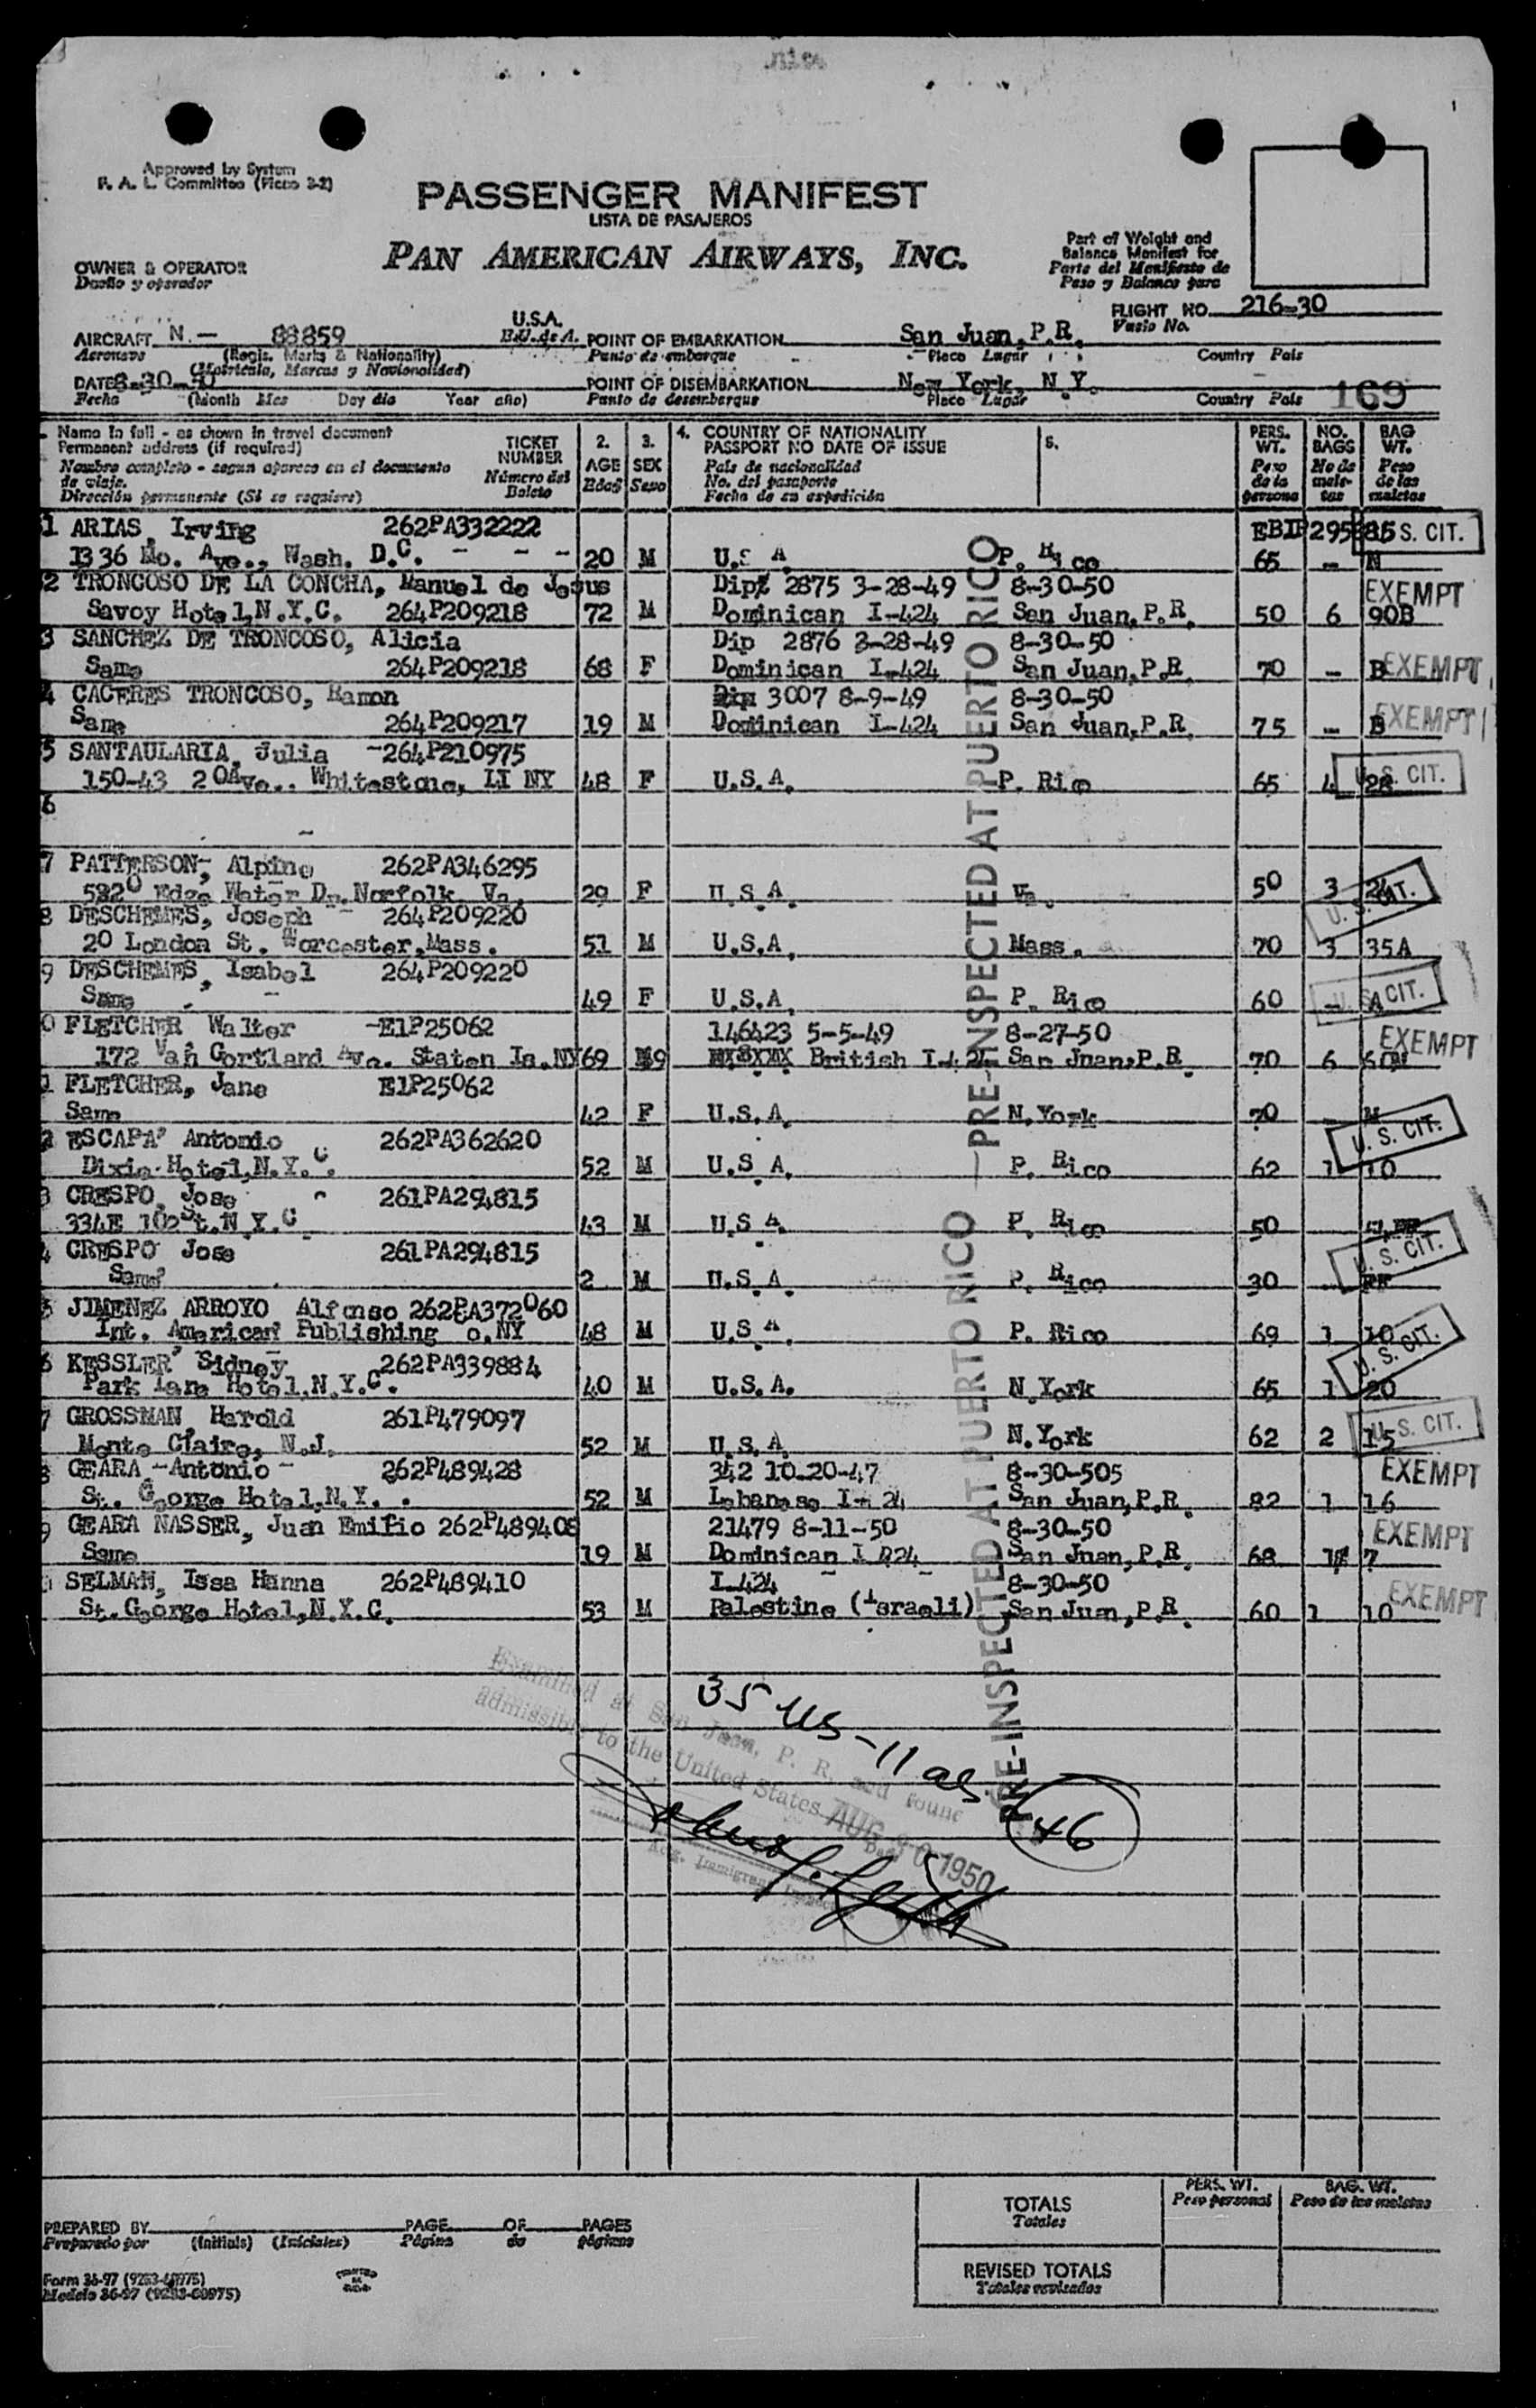 Approved by System
P. A. L. Committee (Ficao 3-2)
PASSENGER MANIFEST
LISTA DE PASAJEROS
PAN AMERICAN AIRWAYS, INC.
Part of Weight and
Balance Manifest for
Parte del Manifiesto de
Peso y Balance para
OWNER & OPERATOR
Dueño y operador
FLIGHT NO. 216-30
Vuelo No.
U.S.A.
E.U. de A.
AIRCRAFT N.- 88859
Aeronave (Regis. Marks & Nationality)
(Matricula, Marcas y Nacionalidad)
POINT OF EMBARKATION San Juan, P.R.
Punto de embarque Place Lugar Country Pais
DATE 8-30-50
Fecha (Month Mes Day dia Year año)
POINT OF DISEMBARKATION New York, N.Y.
Punto de desembarque Place Lugar Country Pais
169
Name in full - as shown in travel document
Permanent address (if required)
Nombre completo - segun aparece en el documento
de viaje.
Dirección permanente (Si se requiere)
TICKET NUMBER
Número del Boleto
2. AGE Edad
3. SEX Sexo
4. COUNTRY OF NATIONALITY
PASSPORT NO DATE OF ISSUE
Pais de nacionalidad
No. del pasaporte
Fecha de su expedición
5.
PERS. WT. Peso de la persona
NO. BAGS No de male-tas
BAG WT. Peso de las maletas
1 ARIAS, Irving 262PA332222 U.S. CIT.
1336 Mo. Ave., Wash. D.C. - - - 20 M U.S.A. P. Rico 65 - N
2 TRONCOSO DE LA CONCHA, Manuel de Jesus Dip 2875 3-28-49 8-30-50 EXEMPT
Savoy Hotel, N.Y.C. 264P209218 72 M Dominican I-424 San Juan, P.R. 50 6 90B
3 SANCHEZ DE TRONCOSO, Alicia Dip 2876 3-28-49 8-30-50
Same 264P209218 68 F Dominican I-424 San Juan, P.R. 70 - B EXEMPT
4 CACERES TRONCOSO, Ramon Dip 3007 8-9-49 8-30-50
Same 264P209217 19 M Dominican I-424 San Juan, P.R. 75 - B EXEMPT
5 SANTAULARIA, Julia -264P210975
150-43 20Ave.. Whitestone, LI NY 48 F U.S.A. P. Rico 65 4 28 U.S. CIT.
6
7 PATTERSON, Alpine 262PA346295
5820 Edge Water Dr. Norfolk Va. 29 F U.S.A. Va. 50 3 24 U.S. CIT.
8 DESCHEMES, Joseph 264P209220
20 London St. Worcester, Mass. 51 M U.S.A. Mass. 70 3 35A
9 DESCHEMES, Isabel 264P209220
Same 49 F U.S.A. P. Rico 60 - A U.S. CIT.
0 FLETCHER Walter -E1P25062 146423 5-5-49 8-27-50 EXEMPT
172 Van Cortland Ave. Staten Is. NY 69 British San Juan, P.R. 70 6
1 FLETCHER, Jane E1P25062
Same 42 F U.S.A. N. York 70
2 ESCAPA' Antonio 262PA362620 U.S. CIT.
Dixie Hotel, N.Y.C. 52 M U.S.A. P. Rico 62 1 10
3 CRESPO, Jose 261PA294815
334E 102St. N.Y.C 43 M U.S.A. P. Rico 50
4 CRESPO Jose 261PA294815 U.S. CIT.
Same 2 M U.S.A. P. Rico 30
5 JIMENEZ ARROYO Alfonso 262PA372060
Int. American Publishing o. NY 48 M U.S.A. P. Rico 69 1 10
6 KESSLER Sidney 262PA339884 U.S. CIT.
Park Lane Hotel, N.Y.C. 40 M U.S.A. N. York 65 1 20
7 GROSSMAN, Harold 261P479097
Monte Claire, N.J. 52 M U.S.A. N. York 62 2 15 U.S. CIT.
8 GEARA -Antonio 262P489428 342 10-20-47 8-30-505 EXEMPT
St. George Hotel, N.Y. . 52 M San Juan, P.R. 82 1 16
9 GEARA NASSER, Juan Emilio 262P489408 21479 8-11-50 8-30-50 EXEMPT
Same 19 M Dominican San Juan, P.R. 68 7
SELMAN, Issa Hanna 262P489410 I-424 8-30-50 EXEMPT
St. George Hotel, N.Y.C. 53 M Palestine (Israeli) San Juan, P.R. 60 1 10
PRE-INSPECTED AT PUERTO RICO
PRE-INSPECTED AT PUERTO RICO
35 US - 11 als
46
Examined at San Juan, P. R. and found
admissible to the United States
AUG 30 1950
TOTALS
Totales
PERS. WT.
Peso personal
BAG. WT.
Peso de las maletas
REVISED TOTALS
Totales revisados
PREPARED BY PAGE OF PAGES
Preparado por (Initials) (Iniciales) Página de páginas
Form 36-97
Modelo 36-97